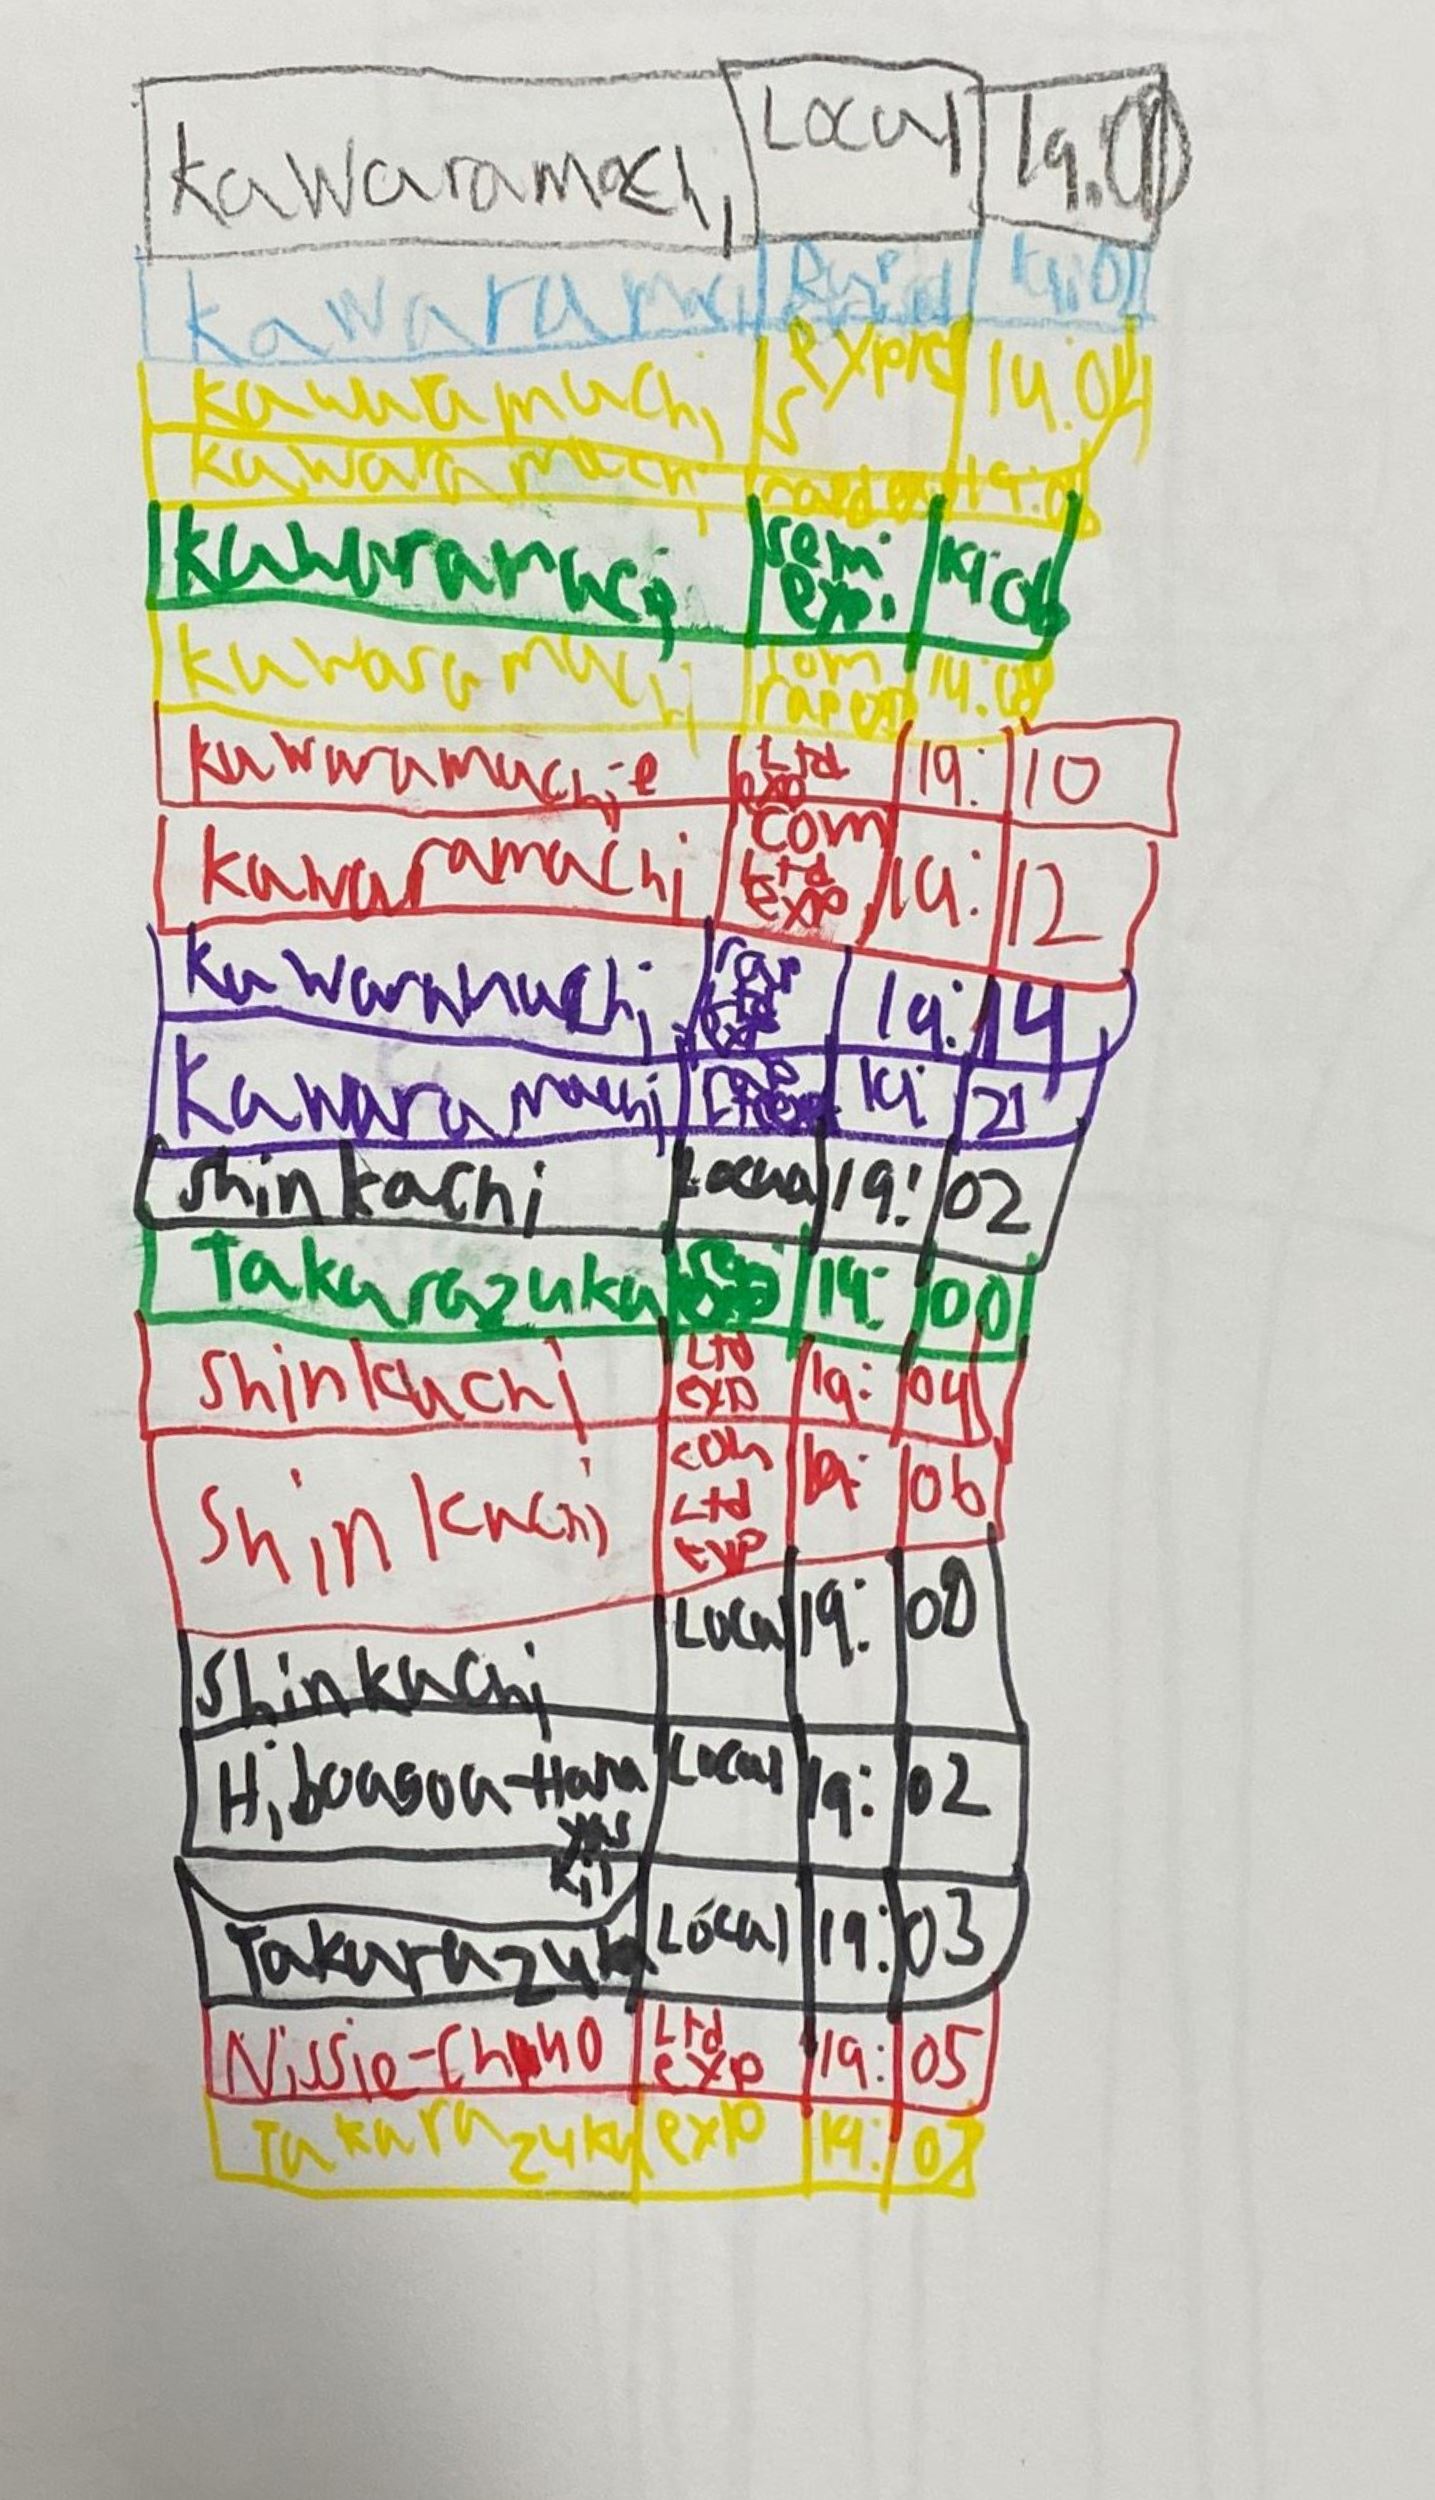 Kawaramachi Local 19:00
kawaramachi Rapid 19:02
kawuramuchi expres 19:04
kawaramachi
kawuramaci semi exp. 19:06
kuwaramuchi com rapexp 19:08
kuwaramuchi-e Ltd exp 19: 10
kawaramachi com Ltd exp 19: 12
kawaramachi rap Ltd exp 19: 14
Kawaramachi 19: 21
Shinkachi Local 19: 02
Takarazuka 19: 00
Shinkuchi Ltd exp 19: 04
Shinkuchi com Ltd exp 19: 06
Shinkuchi Local 19:
Hibuasoa-Hana Local 19: 02
Takarazuka Local 19: 03
Nissie-Chuho Ltd exp 19: 05
Takarazuka exp 19: 07